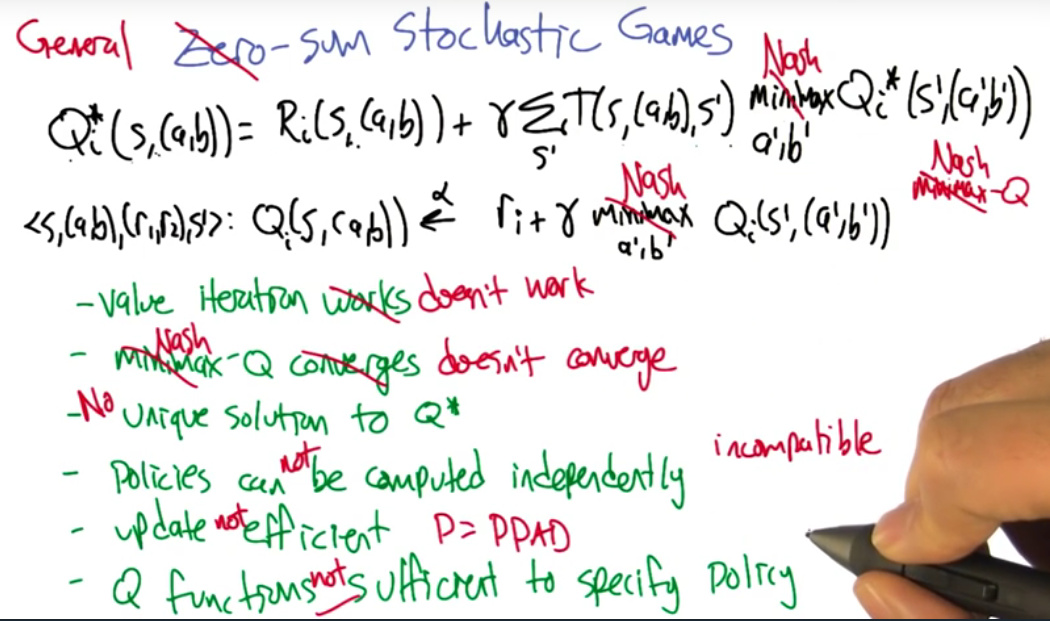 General Zero-sum Stochastic Games
Nash
Qi*(s,(a,b)) = Ri(s,(a,b)) + γ Σ T(s,(a,b),s') minimax Qi*(s',(a',b'))
s' a',b'
Nash
minimax-Q
Nash
<s,(a,b),(r1,r2),s'>: Qi(s,(a,b)) ←α ri + γ minimax Qi(s',(a',b'))
a',b'
- value iteration works doesn't work
Nash
- minimax-Q converges doesn't converge
- No unique solution to Q*
- Policies can not be computed independently incompatible
- update not efficient P = PPAD
- Q functions not sufficient to specify policy